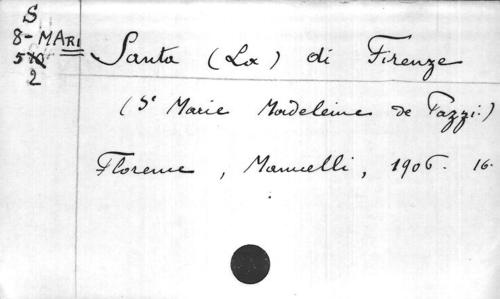 S
8-MARI
2
Santa (La) di Firenze
(Ste Marie Madeleine de Pazzi.)
Florence, Manuelli, 1906. 16.